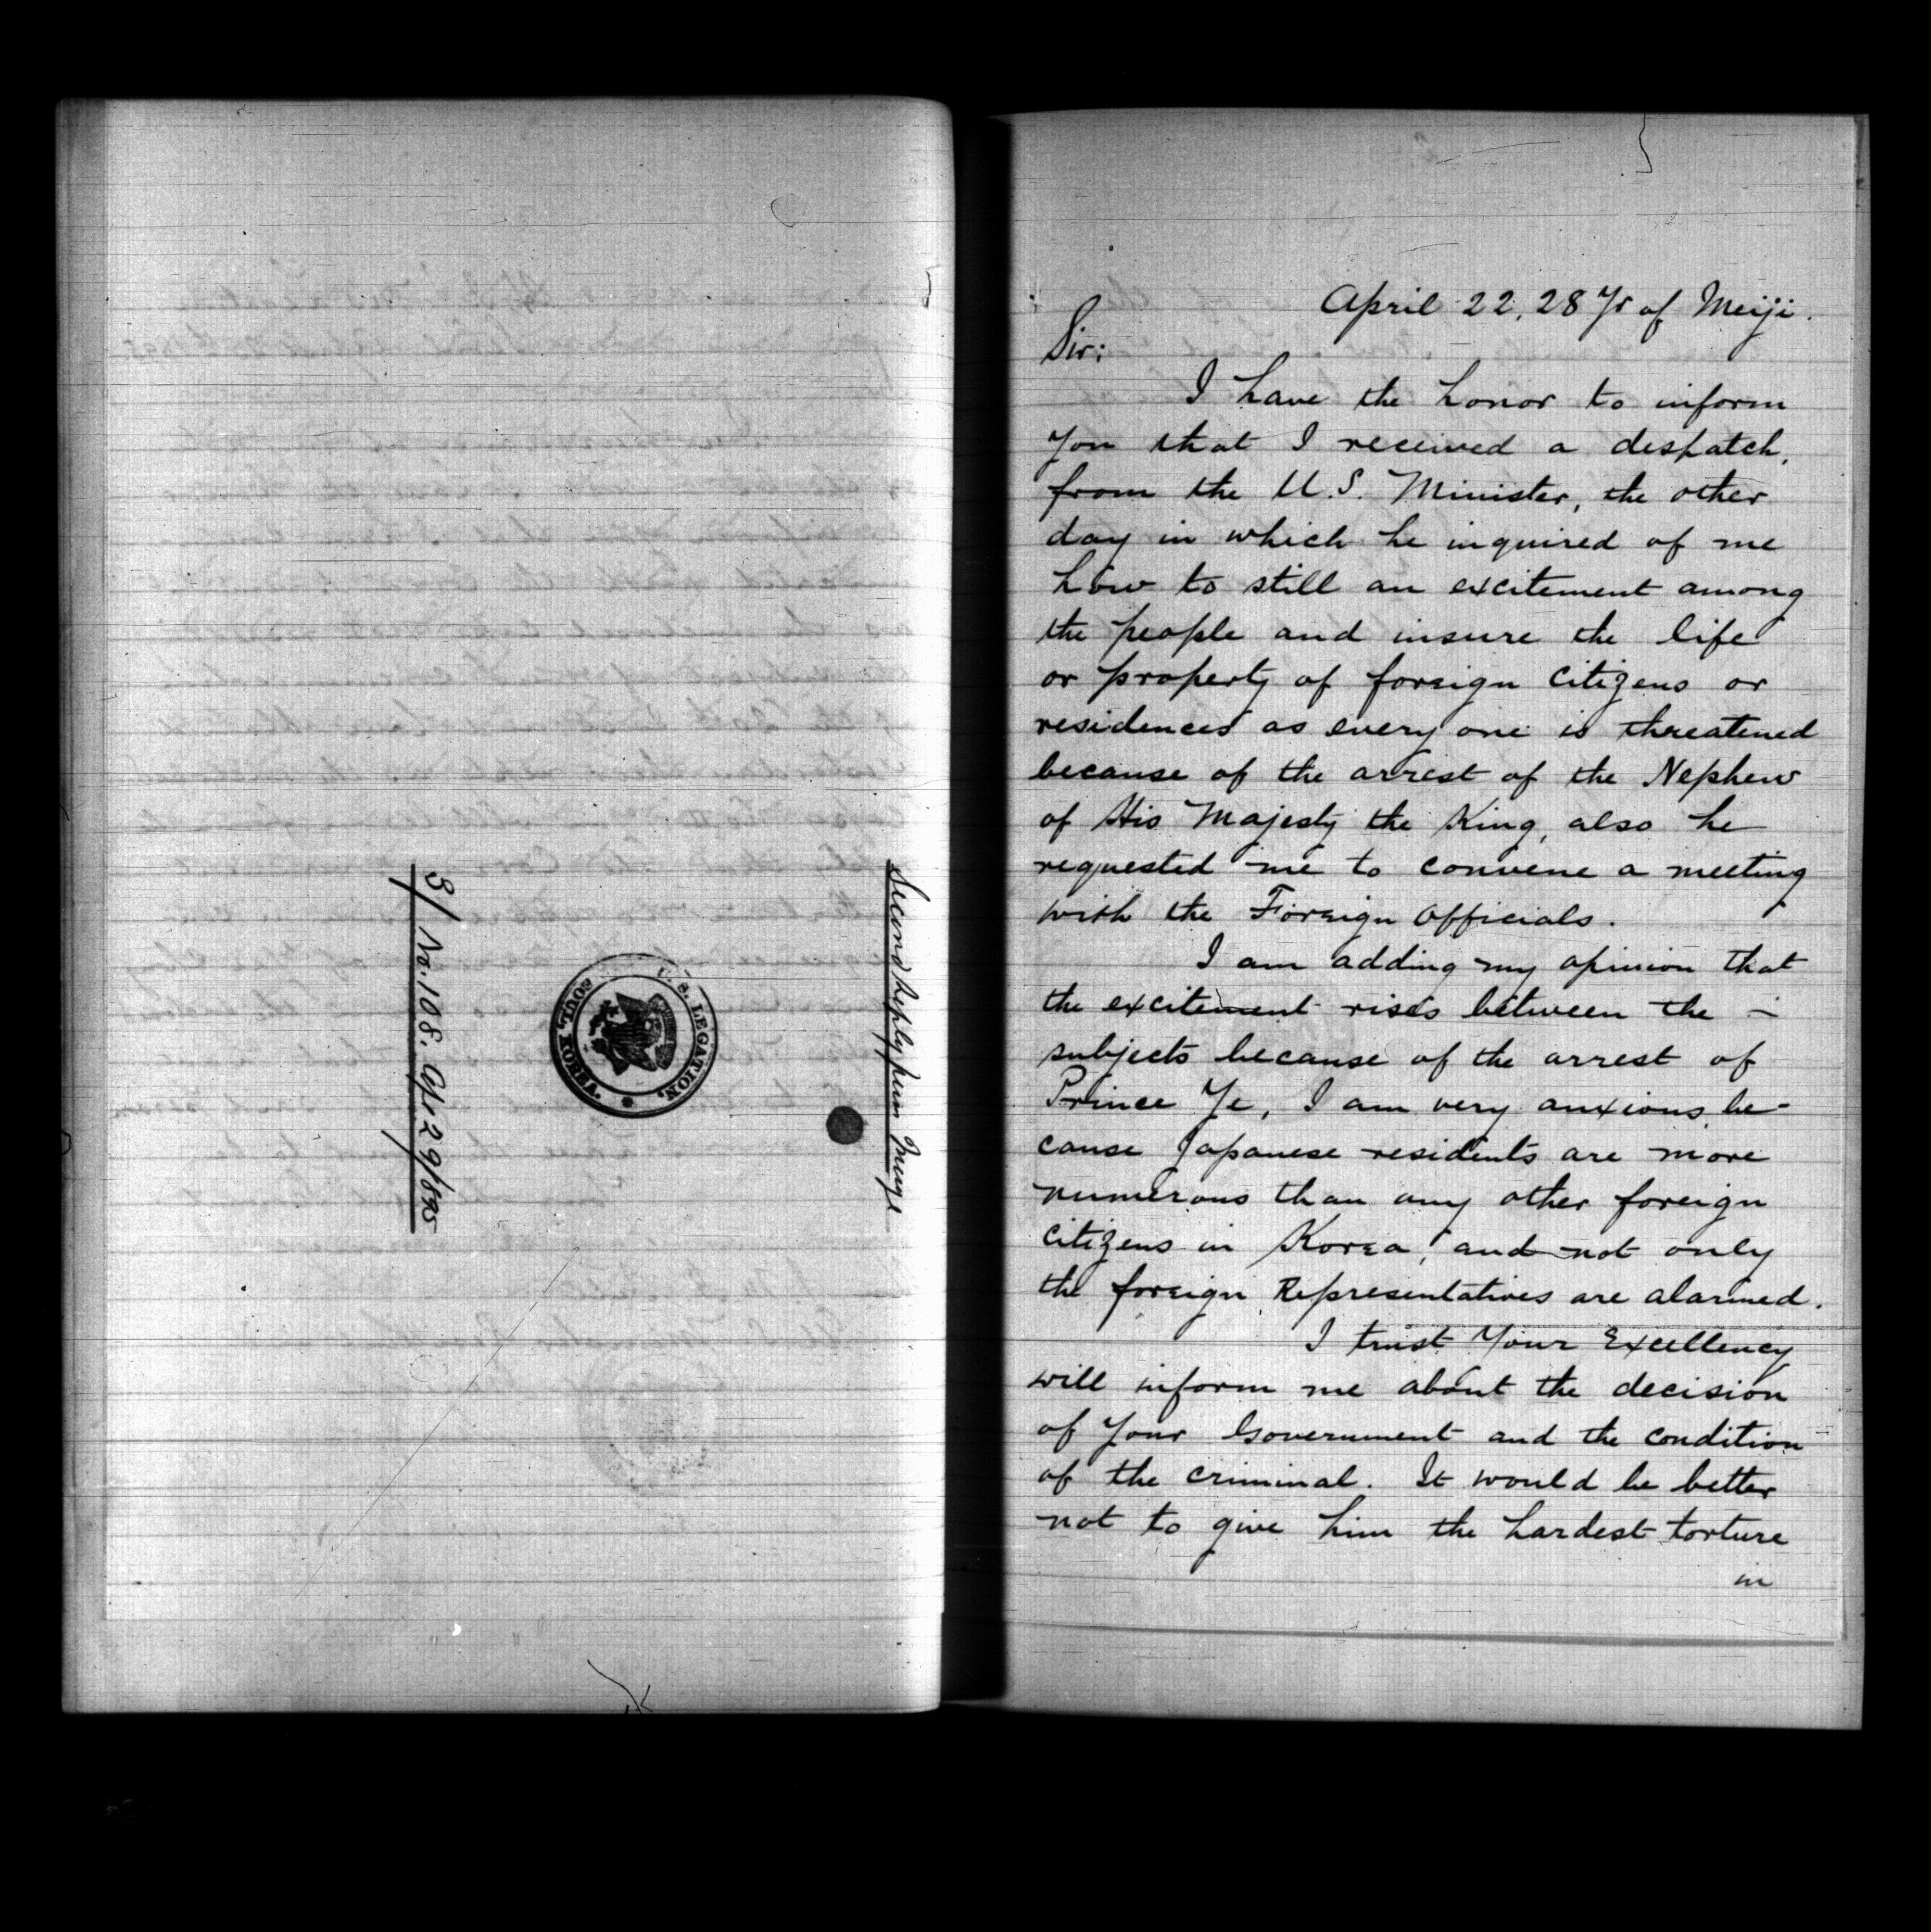 Second Reply from Inouye
U. S. LEGATION,
SOUL, KOREA.
3/ No. 108. Apr 29/895
April 22, 28 Yr of Meiji.
Sir:
I have the honor to inform
you that I received a despatch,
from the U.S. Minister, the other
day in which he inquired of me
how to still an excitement among
the people and insure the life
or property of foreign citizens or
residences as every one is threatened
because of the arrest of the Nephew
of His Majesty the King, also he
requested me to convene a meeting
with the Foreign Officials.
I am adding my opinion that
the excitement rises between the -
subjects because of the arrest of
Prince Ye, I am very anxious be-
cause Japanese residents are more
numerous than any other foreign
citizens in Korea, and not only
the foreign Representatives are alarmed.
I trust Your Excellency
will inform me about the decision
of Your Government and the condition
of the criminal. It would be better
not to give him the hardest torture
in